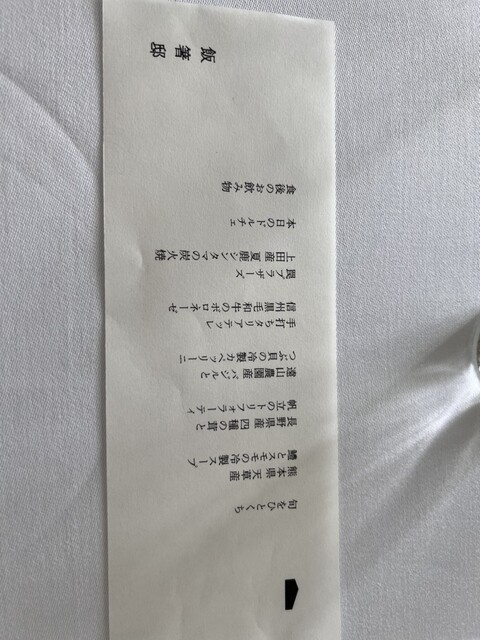 旬をひとくち
熊本県 天草産
鱧とスモモの冷製スープ
長野県産 四種の茸と
帆立のトリフォラーティ
遠山農園産バジルと
つぶ貝の冷製カペッリーニ
手打ちタリアテッレ
信州黒毛和牛のボロネーゼ
罠ブラザーズ
上田産夏鹿シンタマの炭火焼
本日のドルチェ
食後のお飲み物
飯箸邸